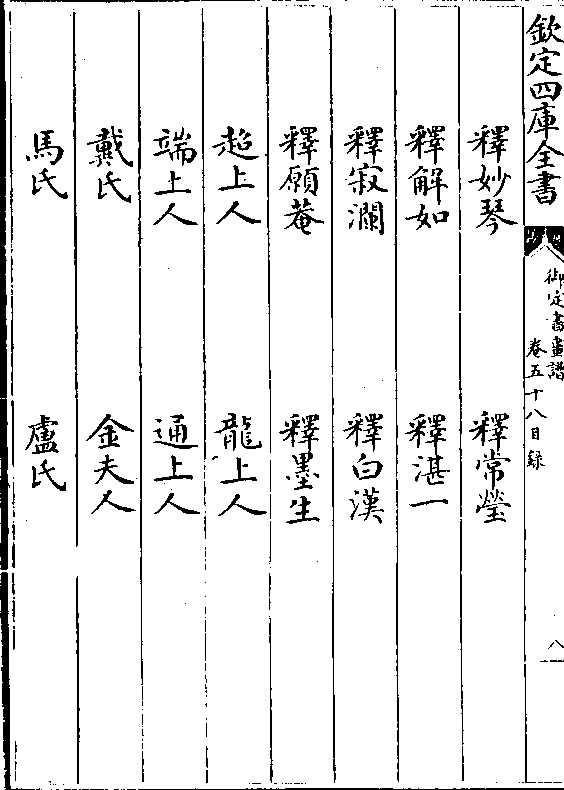 欽定四庫全書
御定書畫譜
卷五十八目録
八
釋妙琴 釋常瑩
釋解如 釋湛一
釋寂瀾 釋白漢
釋願菴 釋墨生
超上人 龍上人
端上人 通上人
戴氏 金夫人
馬氏 盧氏